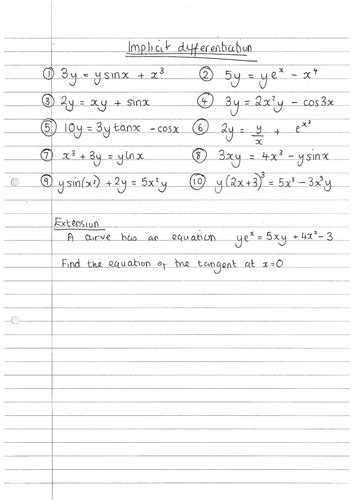 Implicit differentiation
① 3y = ysinx + x³ ② 5y = yeˣ - x⁴
③ 2y = xy + sinx ④ 3y = 2x²y - cos3x
⑤ 10y = 3ytanx - cosx ⑥ 2y = y/x + e^(x²)
⑦ x³ + 3y = ylnx ⑧ 3xy = 4x³ - ysinx
⑨ ysin(x²) + 2y = 5x²y ⑩ y(2x+3)³ = 5x³ - 3x³y
Extension
A curve has an equation yeˣ = 5xy + 4x² - 3
Find the equation of the tangent at x=0